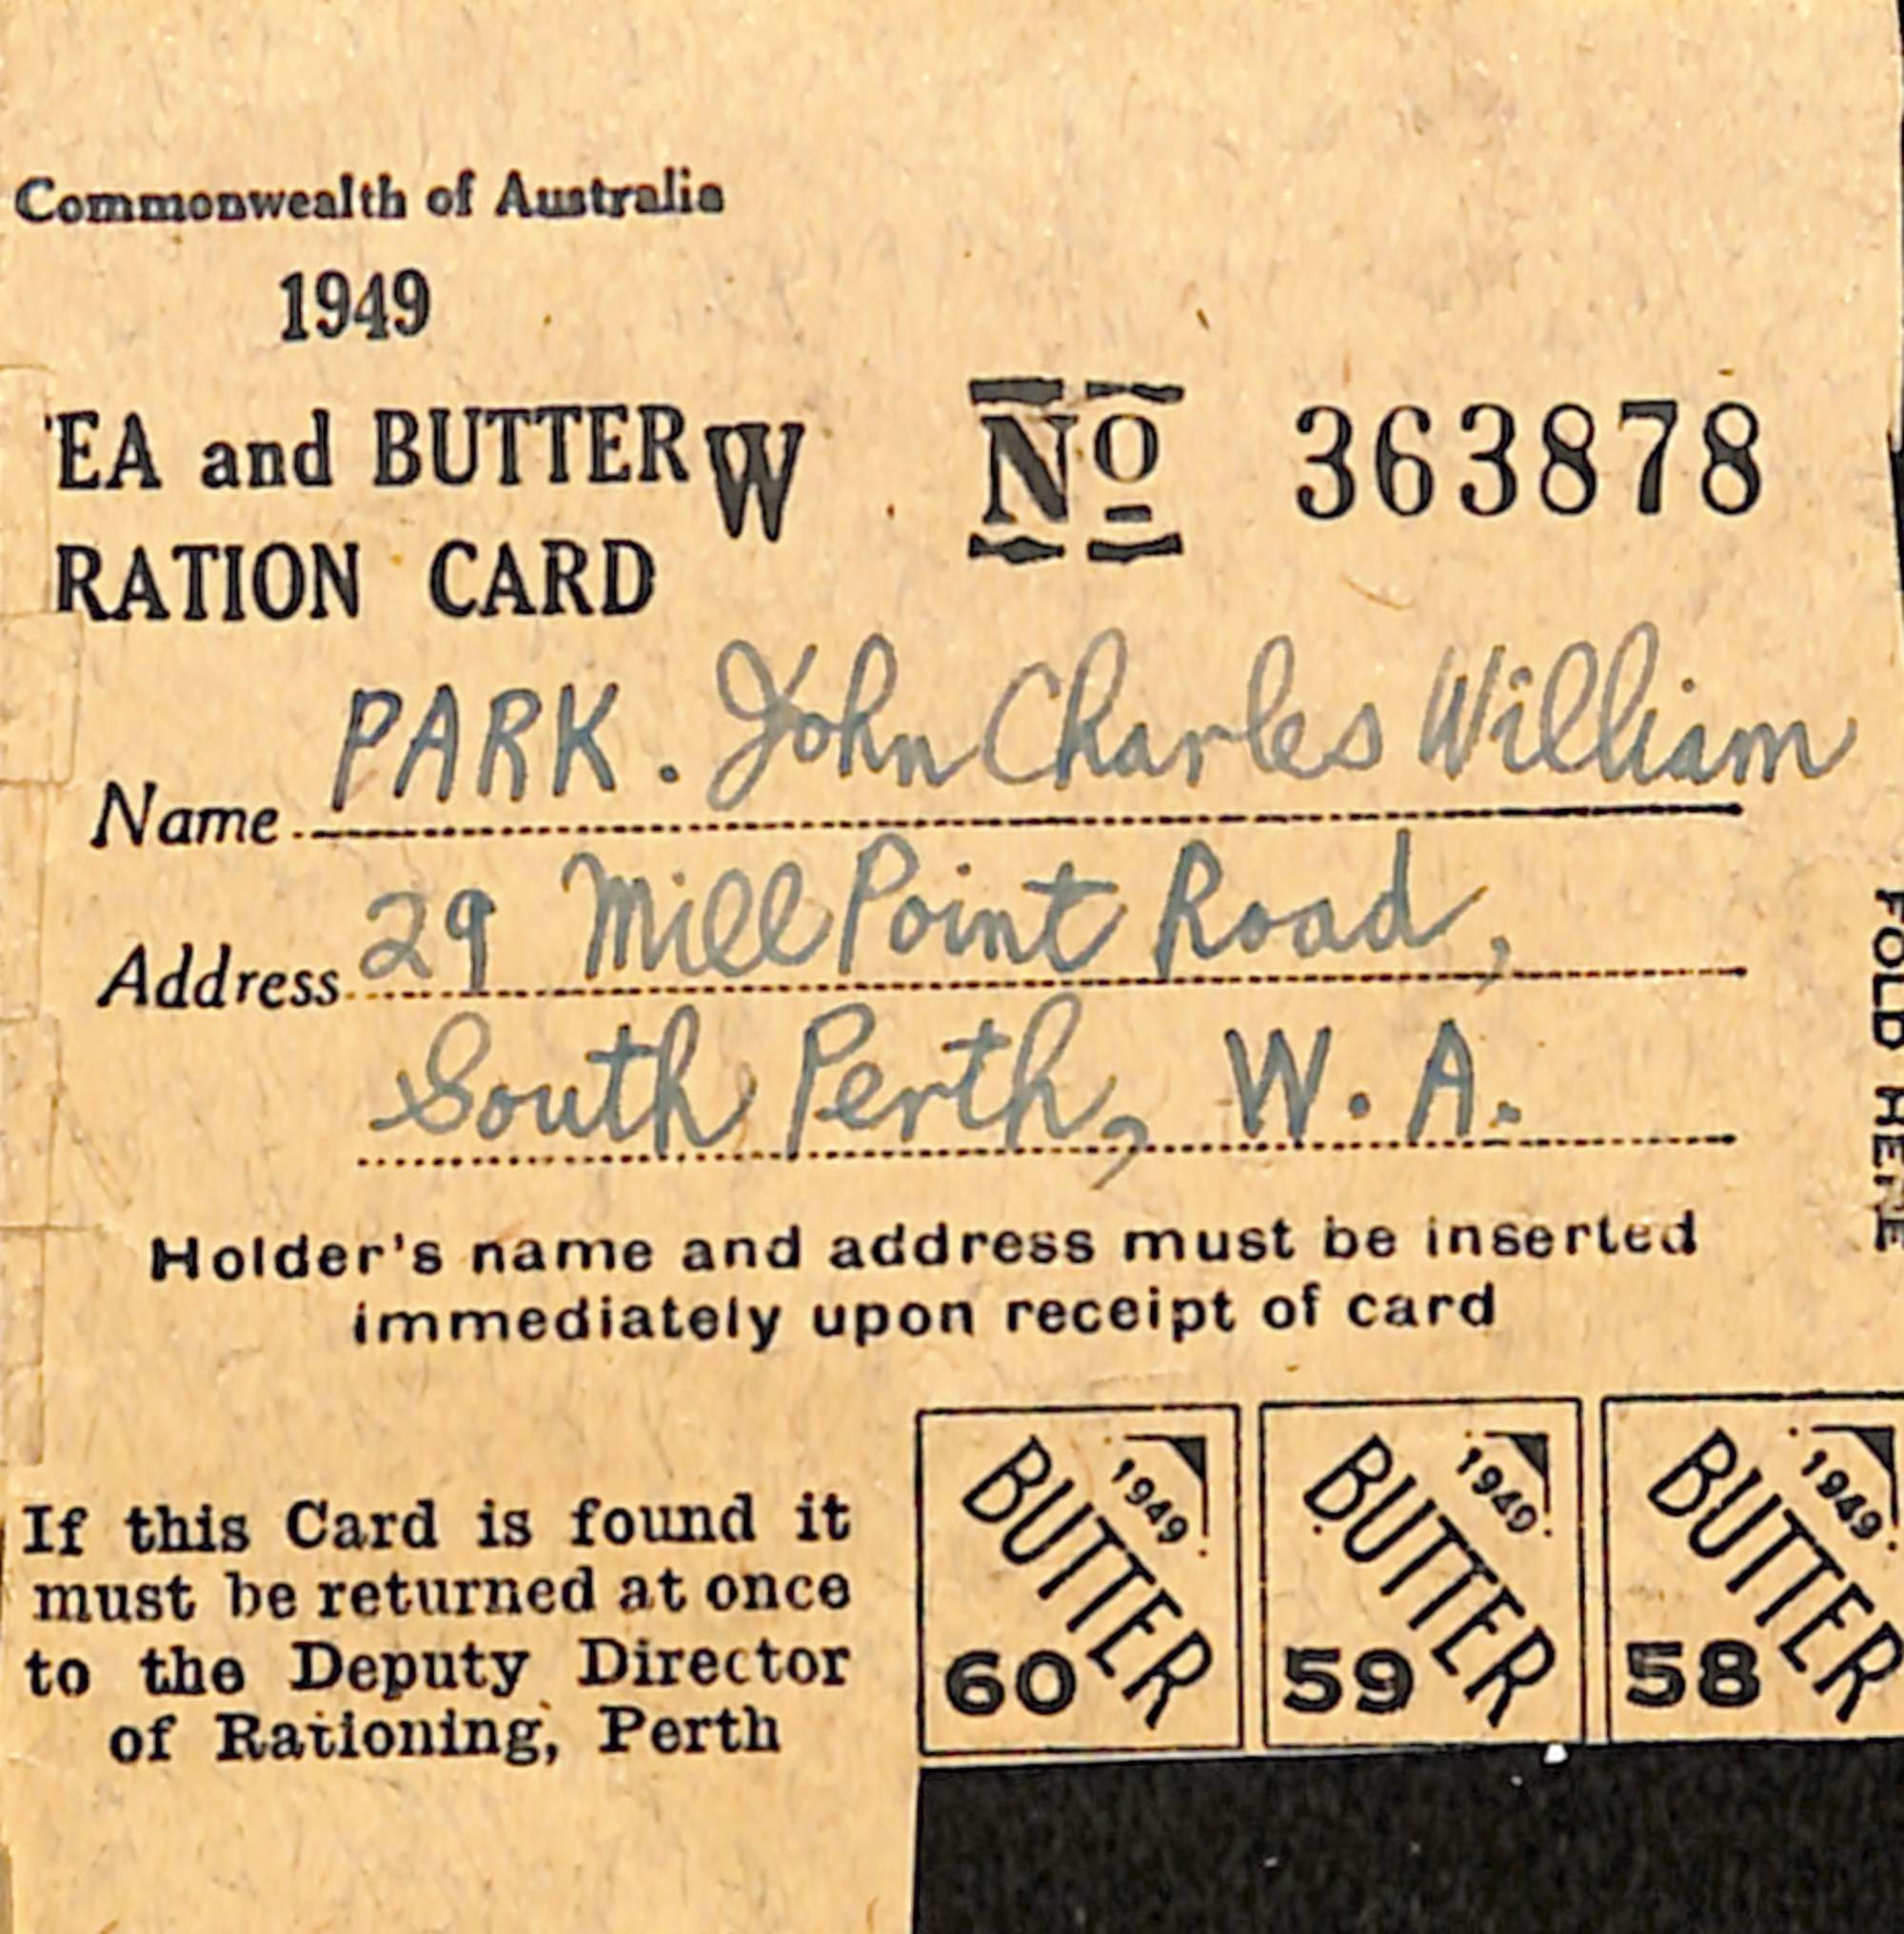 Commonwealth of Australia
1949
EA and BUTTER W Nº 363878
RATION CARD
Name PARK. John Charles William
Address 29 Mill Point Road,
South Perth, W. A.
Holder's name and address must be inserted
immediately upon receipt of card
FOLD HERE
If this Card is found it
must be returned at once
to the Deputy Director
of Rationing, Perth
BUTTER 1949 60
BUTTER 1949 59
BUTTER 1949 58